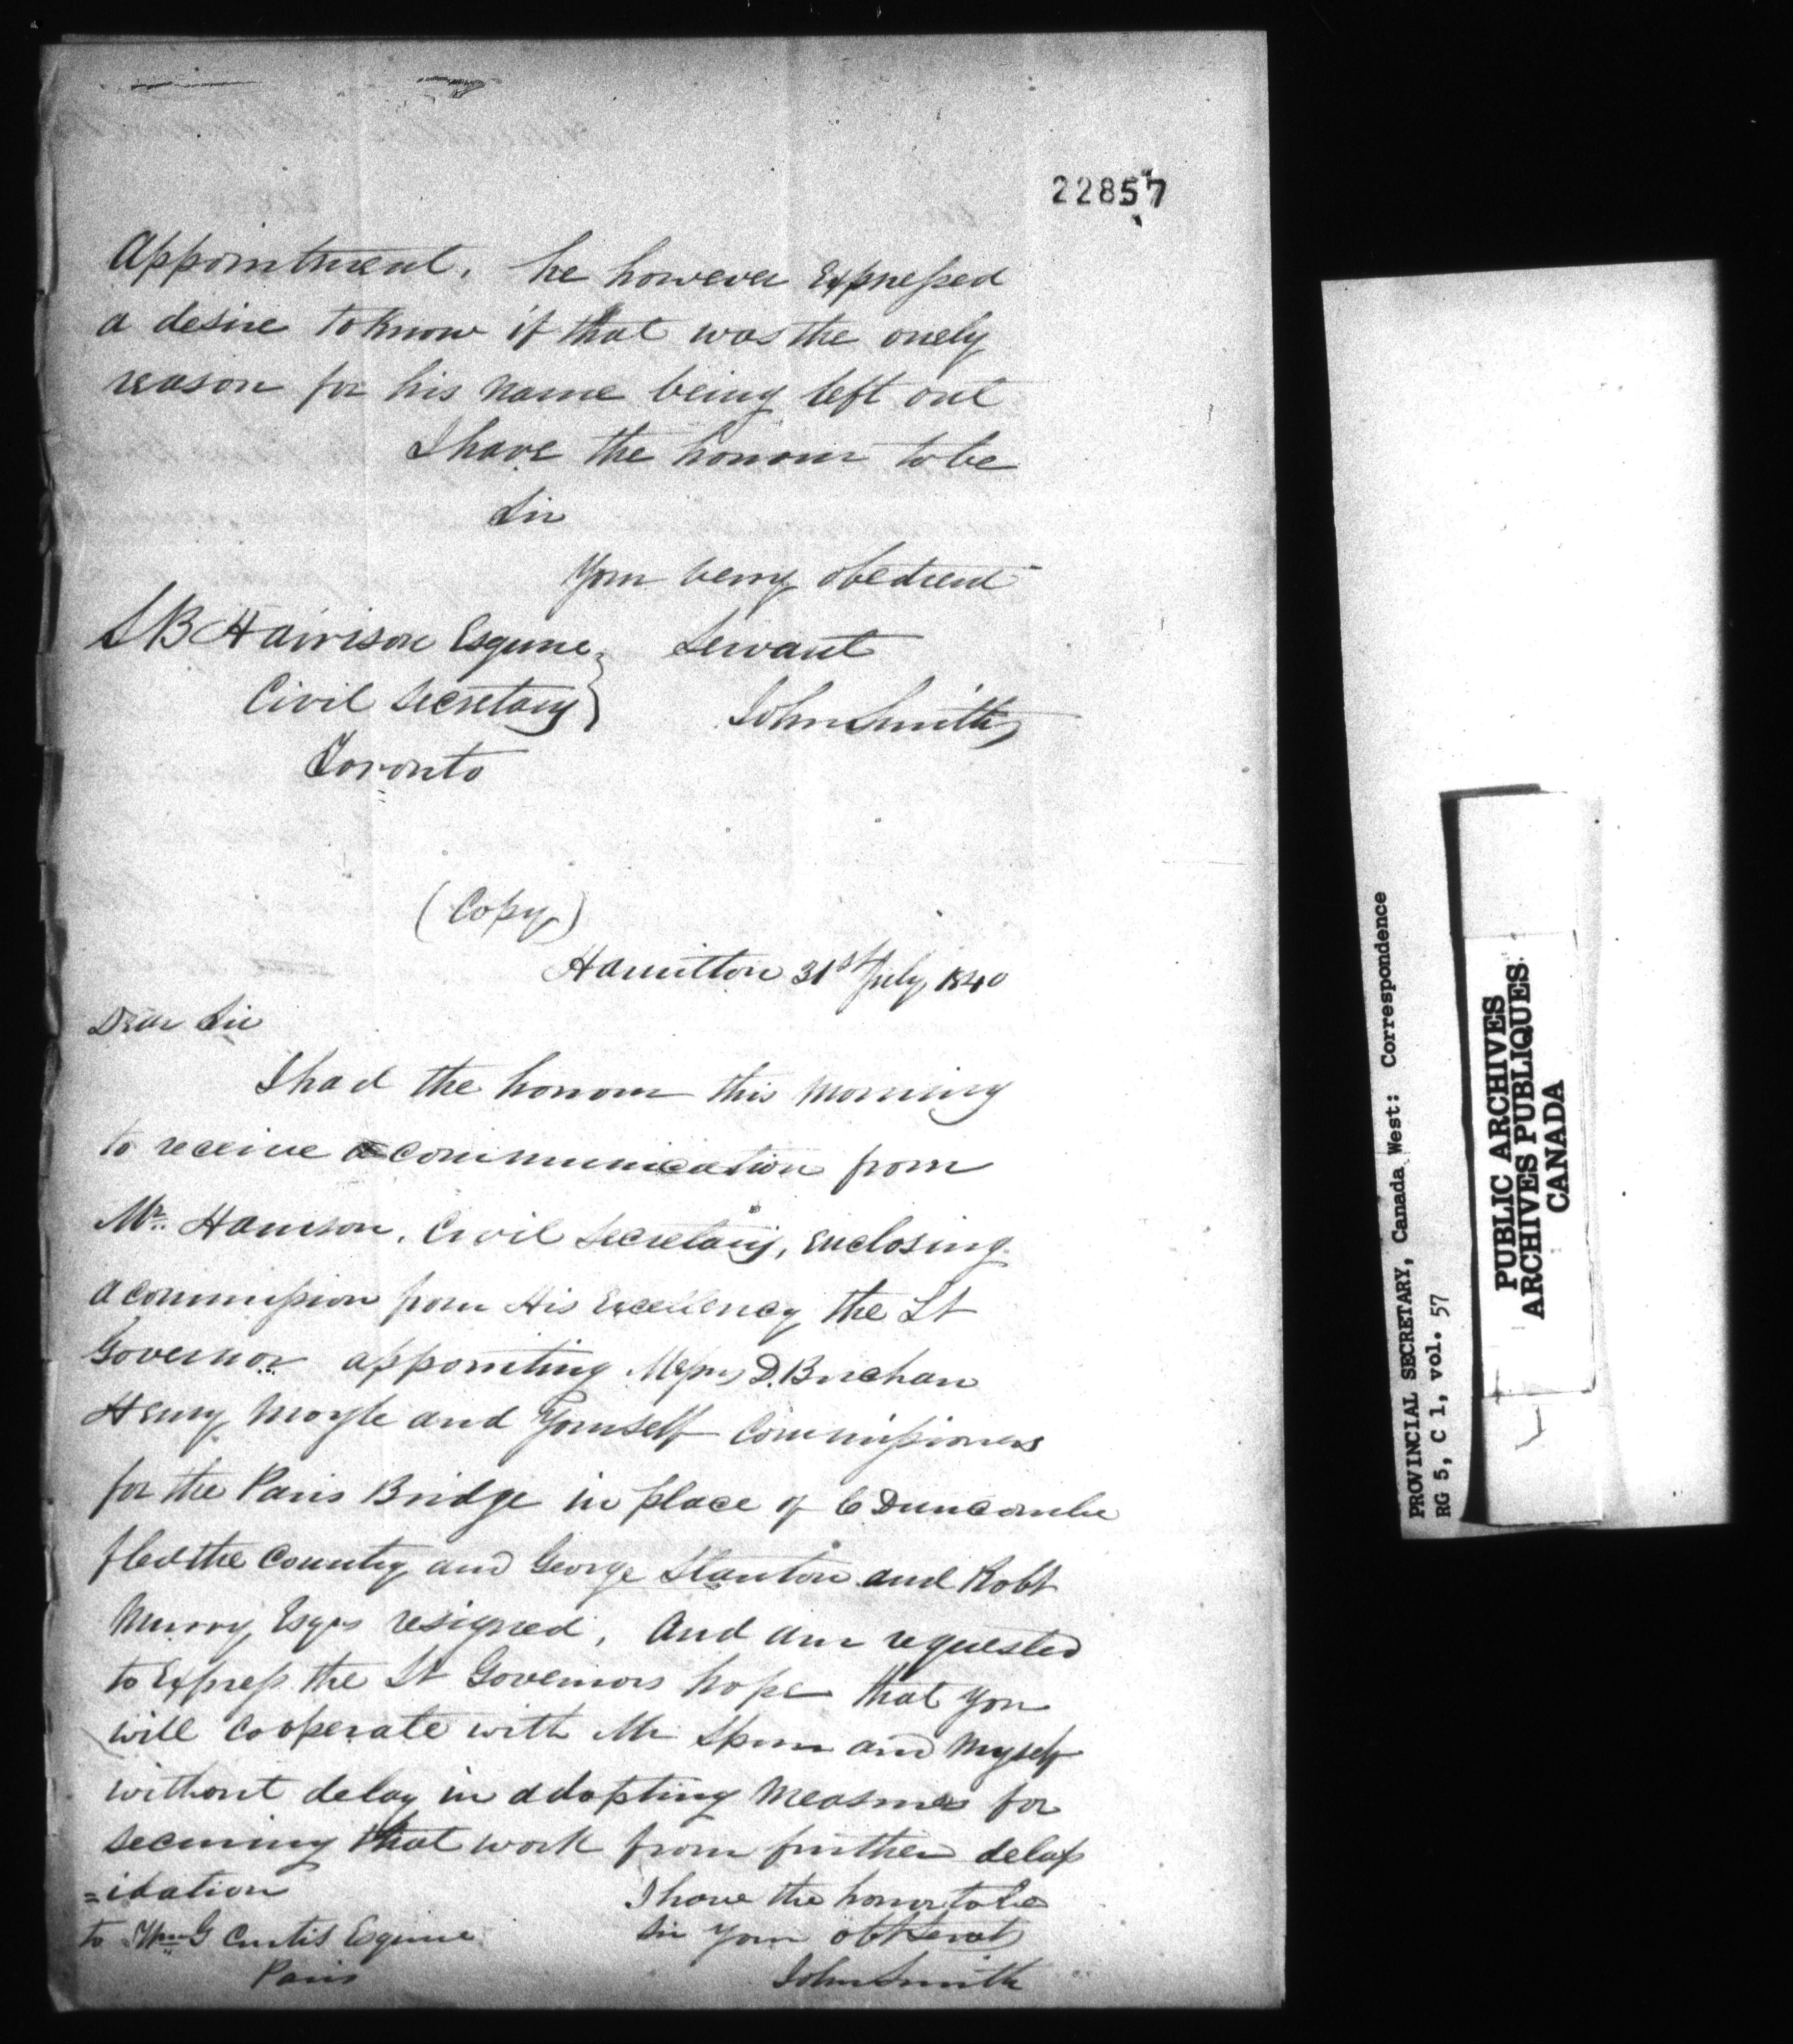 22857
Appointment. he however Expressed
a desire to know if that was the onely
reason for his name being left out
I have the honour to be
Sir
Your very obedient
S B Harrison Esquire Servant
Civil Secretary John Smith
Toronto
(Copy)
Hamilton 31st July 1840
Dear Sir
I had the honour this morning
to receive a communication from
Mr. Harrison, Civil Secretary, enclosing
a commission from His Excellency the Lt
Governor appointing Messrs D. Buchan
Henry Moyle and Yourself Commissioners
for the Paris Bridge in place of C Duncombe
fled the Country and George Stanton and Robt
Murry Esqrs resigned, and am requested
to Express the Lt Governors hope that you
will Cooperate with Mr and Myself
without delay in adopting measures for
securing that work from further delap
=idation I have the honor to be
to Wm G Curtis Esquire Sir Your obt Servt
Paris John Smith
PROVINCIAL SECRETARY, Canada West: Correspondence
RG 5, C 1, vol. 57
PUBLIC ARCHIVES
ARCHIVES PUBLIQUES
CANADA